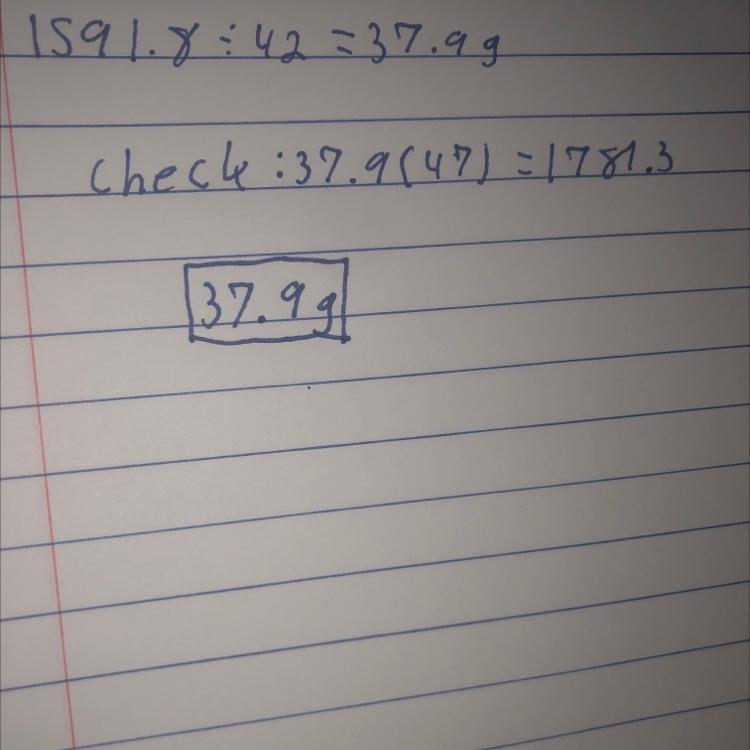 1591.8 ÷ 42 = 37.9 g
Check : 37.9(47) = 1781.3
37.9 g